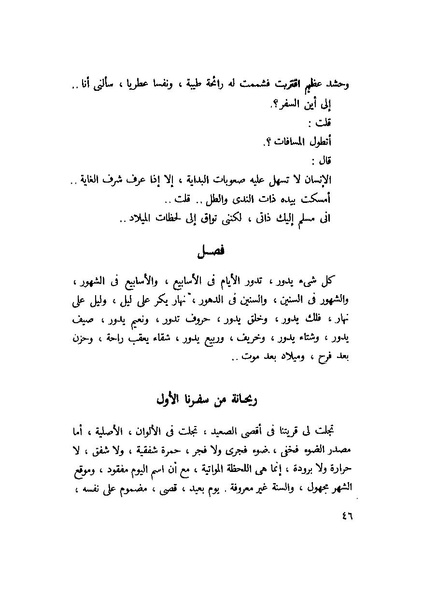 وحشد عظيم اقتربت فشممت له رائحة طيبة ، ونفسا عطريا ، سألنى أنا ..
إلى أين السفر ؟.
قلت :
أتطول المسافات ؟.
قال :
الإنسان لا تسهل عليه صعوبات البداية ، إلا إذا عرف شرف الغاية ..
أمسكت بيده ذات الندى والطل .. قلت ..
انى مسلم إليك ذاتى ، لكننى تواق إلى لحظات الميلاد ..
فصل
كل شىء يدور ، تدور الأيام فى الأسابيع ، والأسابيع فى الشهور ،
والشهور فى السنين ، والسنين فى الدهور ، نهار يكر على ليل ، وليل على
نهار ، فلك يدور ، وخلق يدور ، حروف تدور ، ونعيم يدور ، صيف
يدور ، وشتاء يدور ، وخريف ، وربيع يدور ، شقاء يعقب راحة ، وحزن
بعد فرح ، وميلاد بعد موت ..
ريحانة من سفرنا الأول
تجلت لى قريتنا فى أقصى الصعيد ، تجلت فى الألوان ، الأصلية ، أما
مصدر الضوء فخفى ، ضوء فجرى ولا فجر ، حمرة شفقية ، ولا شفق ، لا
حرارة ولا برودة ، إنما هى اللحظة المواتية ، مع أن اسم اليوم مفقود ، وموقع
الشهر مجهول ، والسنة غير معروفة . يوم بعيد ، قصى ، مضموم على نفسه ،
٤٦